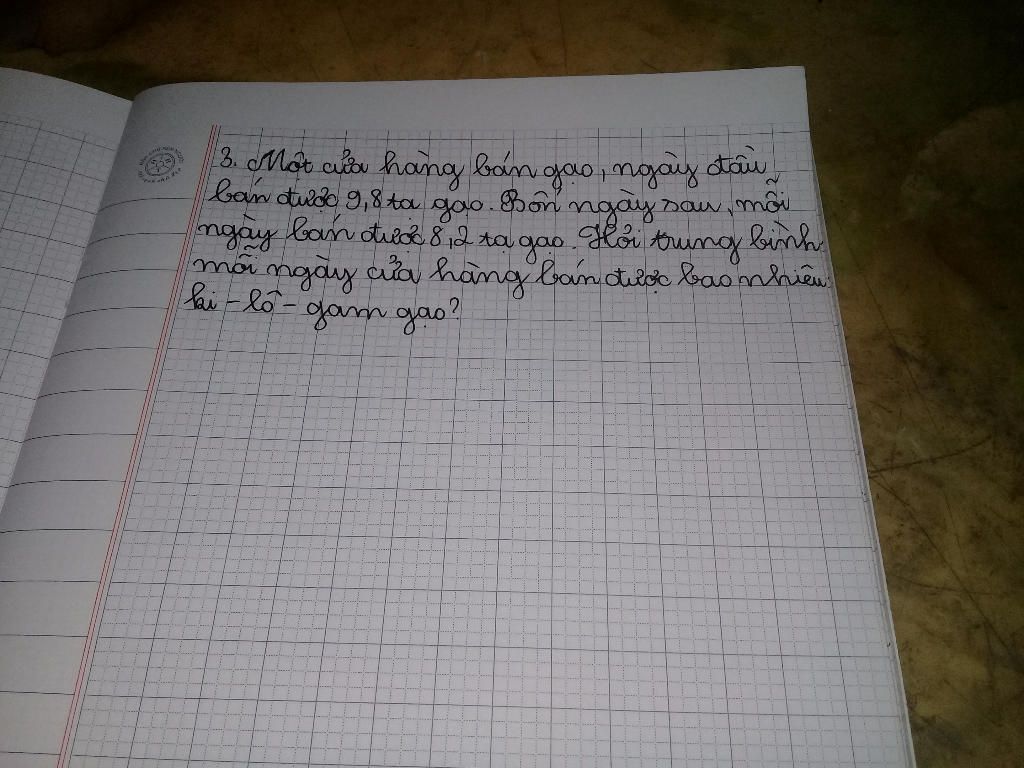 3. Một cửa hàng bán gạo, ngày đầu
bán được 9,8 tạ gạo. Bốn ngày sau, mỗi
ngày bán được 8,2 tạ gạo. Hỏi trung bình
mỗi ngày cửa hàng bán được bao nhiêu
ki-lô-gam gạo?